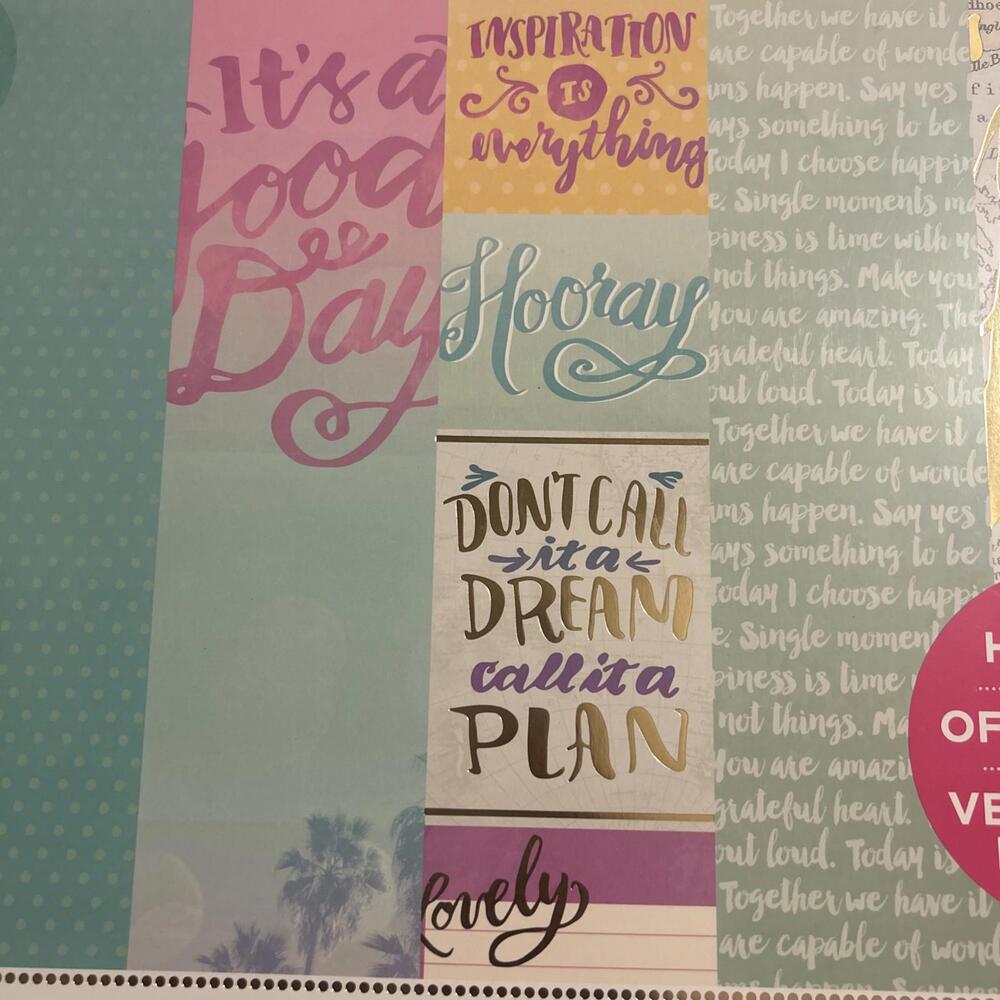 It's a
Good
Day
INSPIRATION
IS
everything
Hooray
DON'T CALL
it a
DREAM
call it a
PLAN
lovely
Together we have it a
are capable of wonde
ams happen. Say yes
ays something to be
Today I choose happin
e. Single moments ma
piness is time with yo
not things. Make you
You are amazing. The
grateful heart. Today
out loud. Today is the
Together we have it a
are capable of wonde
ams happen. Say yes
ays something to be
Today I choose happi
e. Single moment
piness is time
not things. Ma
You are amazi
grateful heart.
out loud. Today is
Together we have it
are capable of wond
H
OF
VE